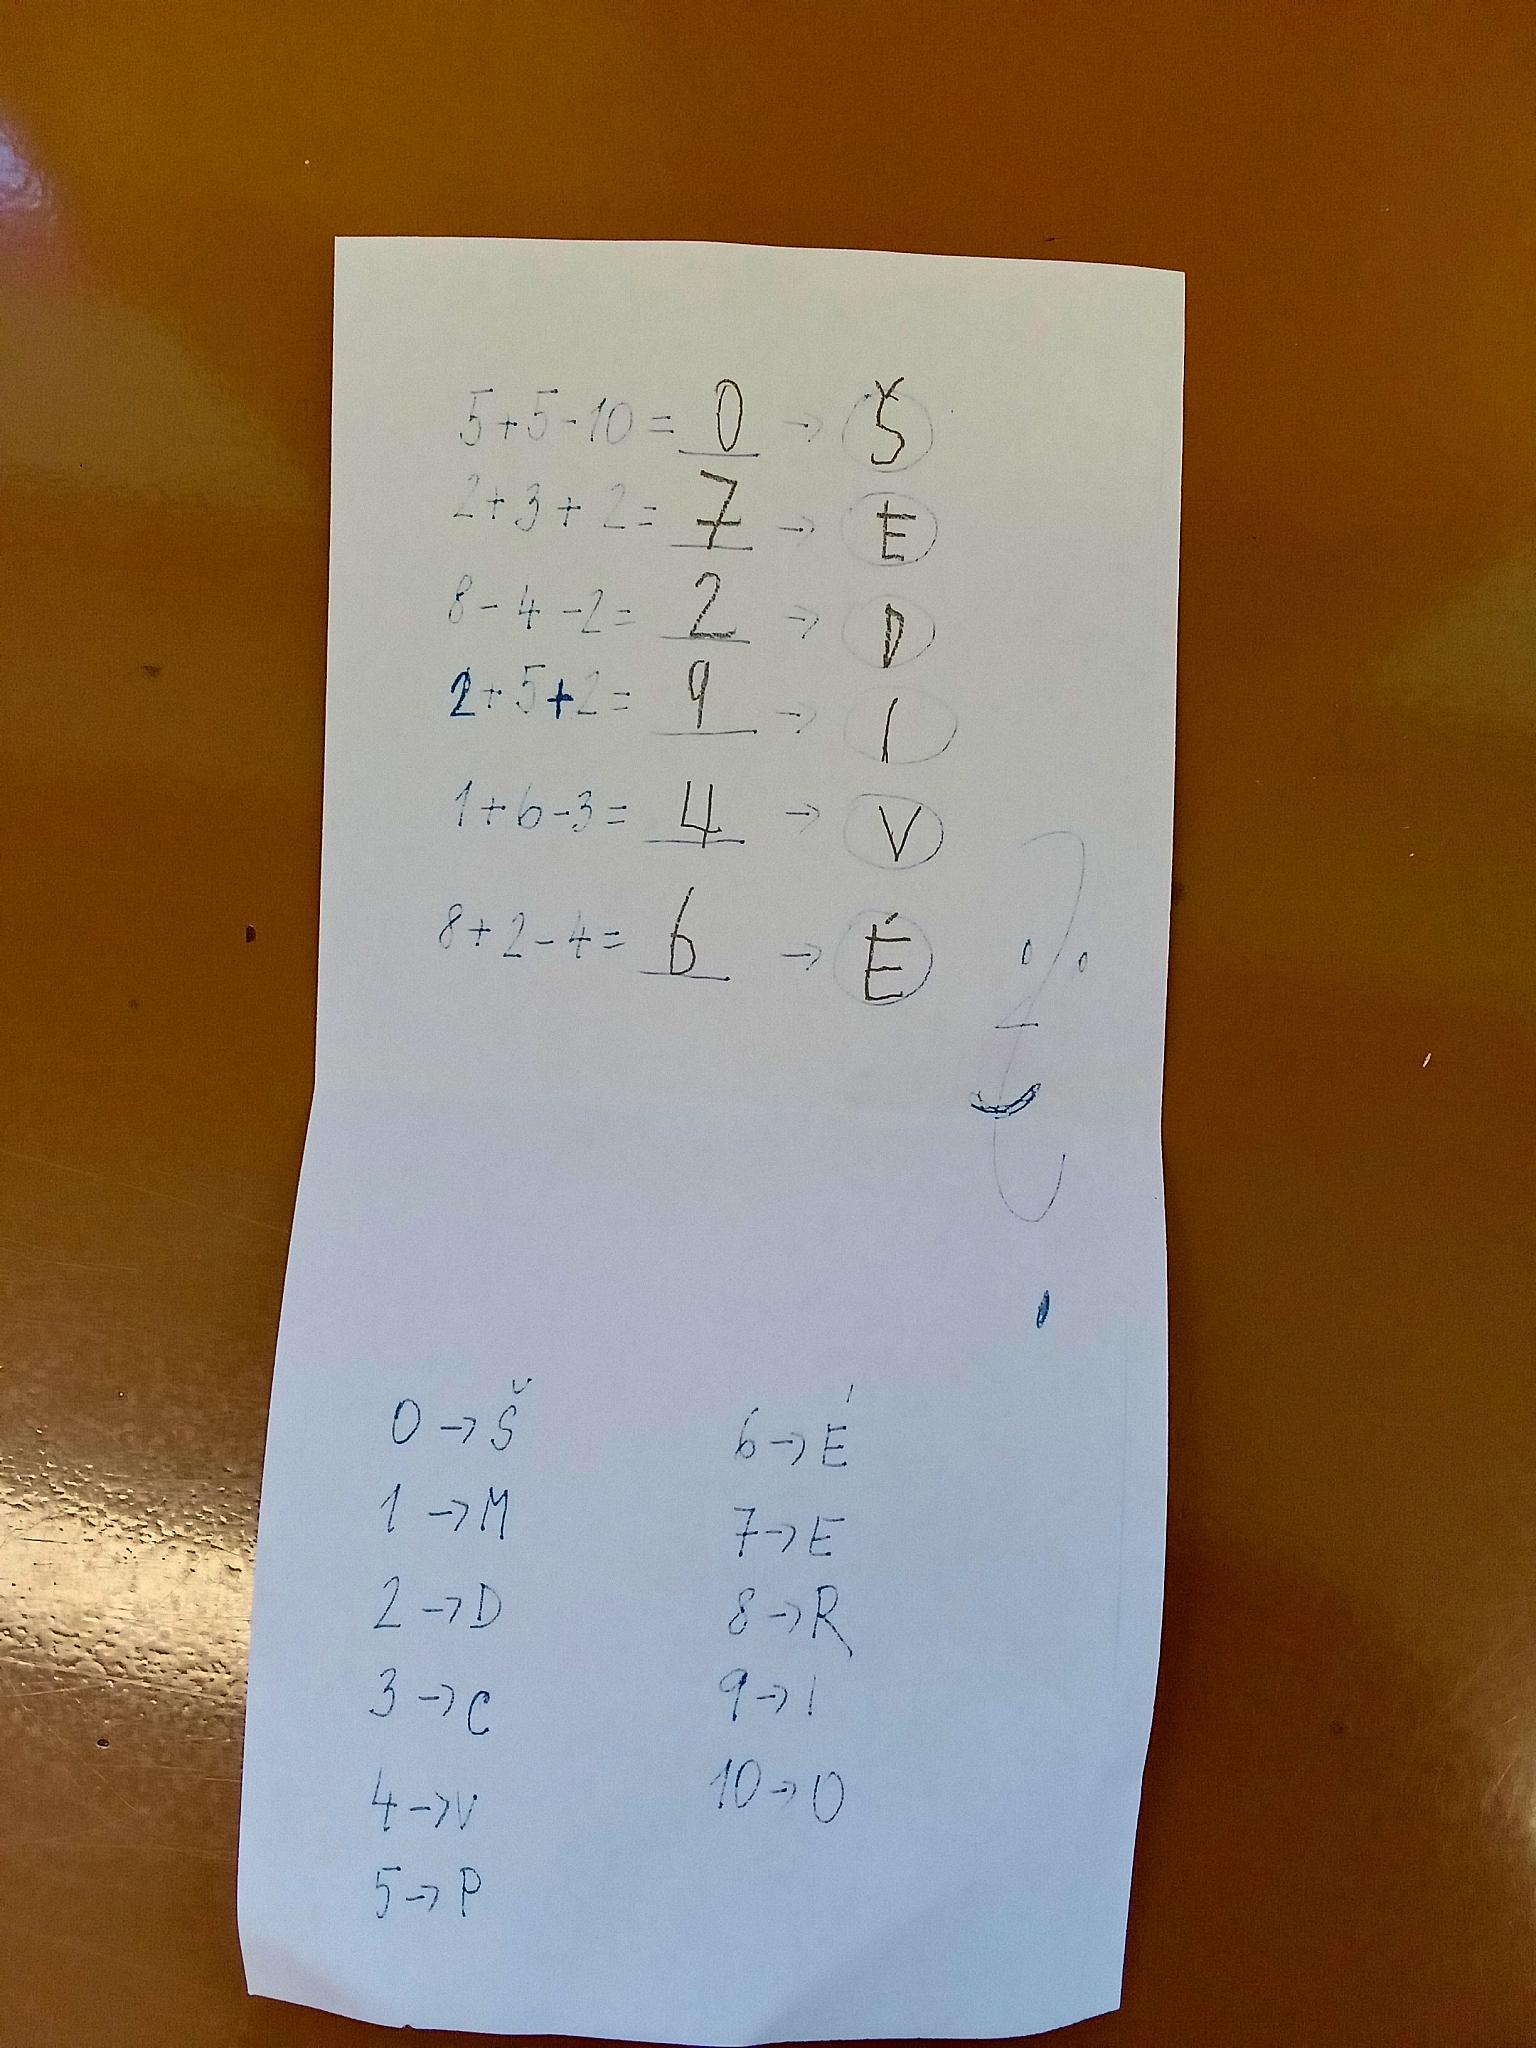 5+5-10= 0 → Š
2+3+2= 7 → E
8-4-2= 2 → D
2+5+2= 9 → I
1+6-3= 4 → V
8+2-4= 6 → É
0→Š
1→M
2→D
3→C
4→V
5→P
6→É
7→E
8→R
9→I
10→O